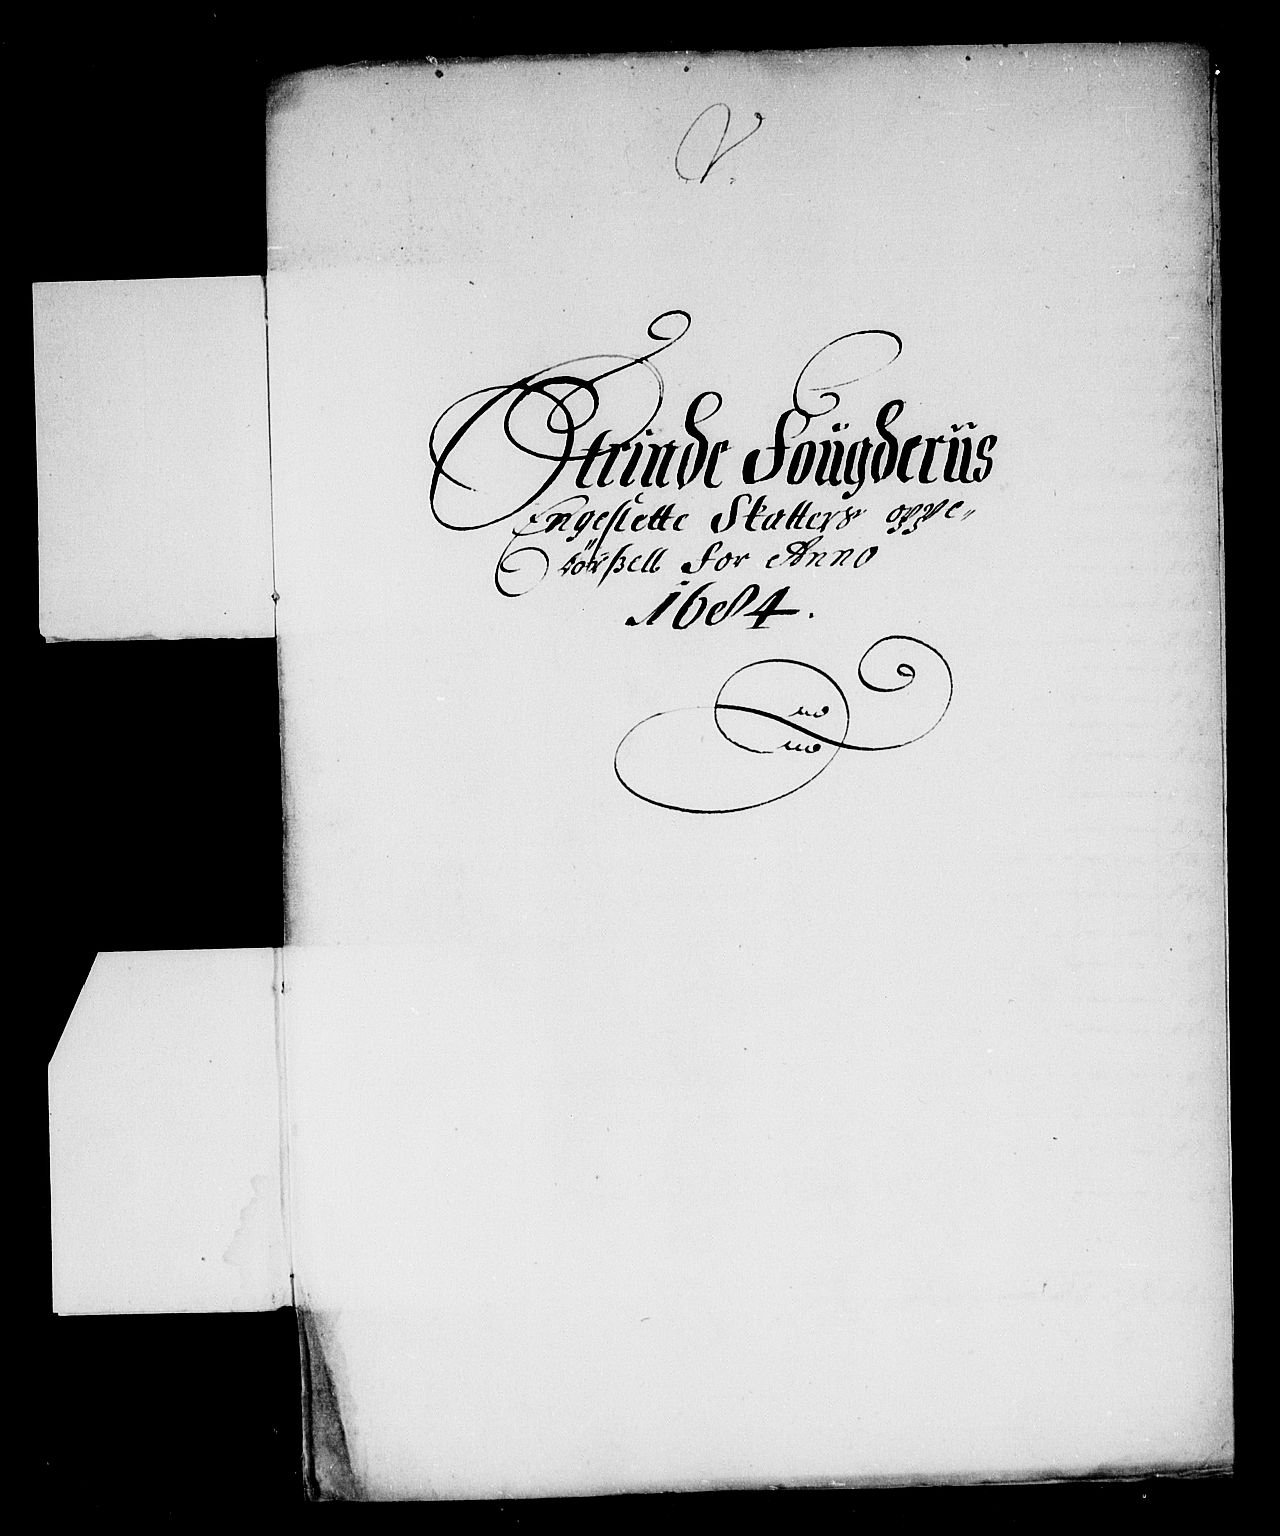 V.
Strinde Foügderiis
Engeslette Skatters oppe-
börßell for Anno
1684.